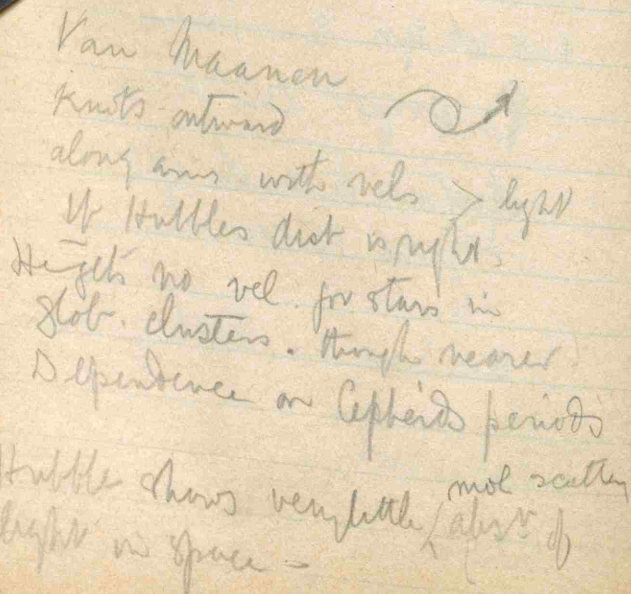 Van Maanen
Knots outward
along arms with vels > light
If Hubbles dist is right.
He gets no vel. for stars in
Glob. clusters. though nearer
Dependence on Cepheids periods
mol scatterg
Hubble shows very little absn of
light in space -